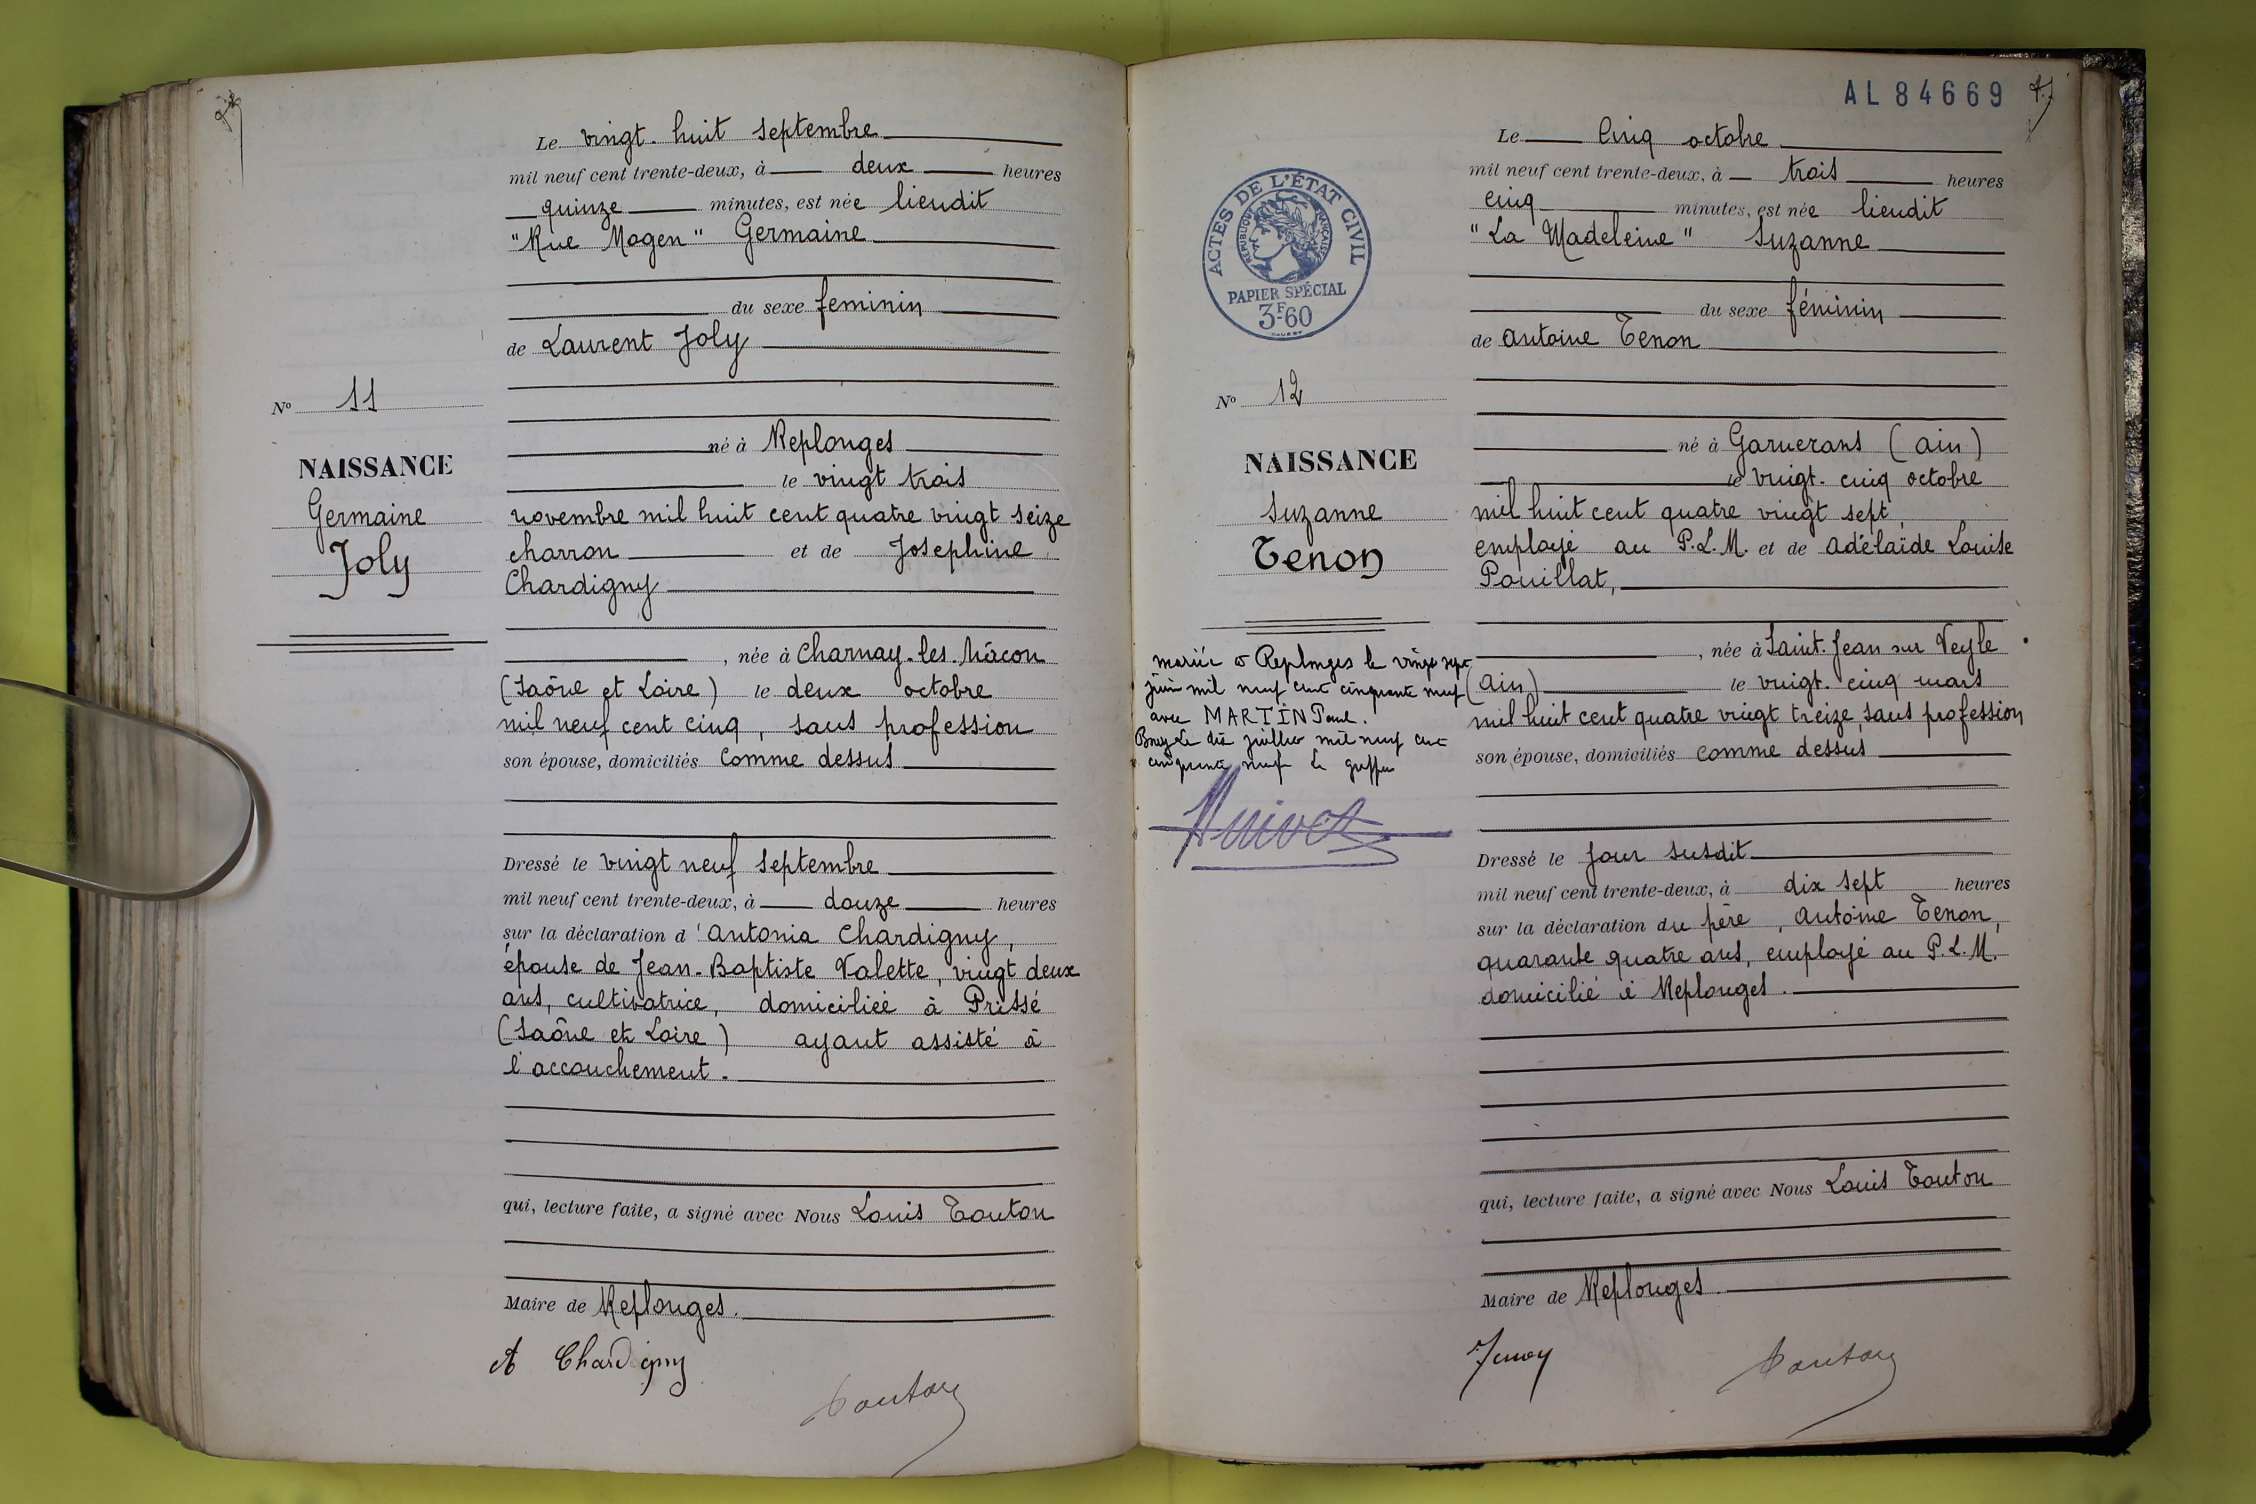 Le vingt-huit septembre
mil neuf cent trente-deux, à deux heures
quinze minutes, est née lieudit
"Rue Mogen" Germaine
du sexe feminin
de Laurent Joly
né à Replonges
le vingt trois
novembre mil huit cent quatre vingt seize
charron et de Josephine
Chardigny
, née à Charnay-les-Mâcon
(Saône et Loire) le deux octobre
mil neuf cent cinq, sans profession
son épouse, domiciliés comme dessus
Dressé le vingt neuf septembre
mil neuf cent trente-deux, à douze heures
sur la déclaration d'Antonia Chardigny,
épouse de Jean-Baptiste Valette, vingt deux
ans, cultivatrice, domiciliée à Prissé
(Saône et Loire) ayant assisté à
l'accouchement.
qui, lecture faite, a signé avec Nous Louis Touton
Maire de Replonges.
A Chardigny
Touton
No 11
NAISSANCE
Germaine
Joly
AL 84669
ACTES DE L'ÉTAT CIVIL
RÉPUBLIQUE FRANÇAISE
PAPIER SPÉCIAL
3F60
No 12
NAISSANCE
Suzanne
Tenon
mariée à Replonges le vingt sept
juin mil neuf cent cinquante neuf
avec MARTIN Paul.
Bourg le dix juillet mil neuf cent
cinquante neuf Le greffier
Le Cinq octobre
mil neuf cent trente-deux, à trois heures
cinq minutes, est née lieudit
"La Madeleine" Suzanne
du sexe féminin
de Antoine Tenon
né à Garnerans (Ain)
le vingt-cinq octobre
mil huit cent quatre vingt sept,
employé au P.L.M. et de Adélaïde Louise
Pouillat,
, née à Saint-Jean sur Veyle
(Ain) le vingt-cinq mars
mil huit cent quatre vingt treize, sans profession
son épouse, domiciliés comme dessus
Dressé le jour susdit
mil neuf cent trente-deux, à dix sept heures
sur la déclaration du père, Antoine Tenon,
quarante quatre ans, employé au P.L.M.
domicilié à Replonges.
qui, lecture faite, a signé avec Nous Louis Touton
Maire de Replonges.
Touton